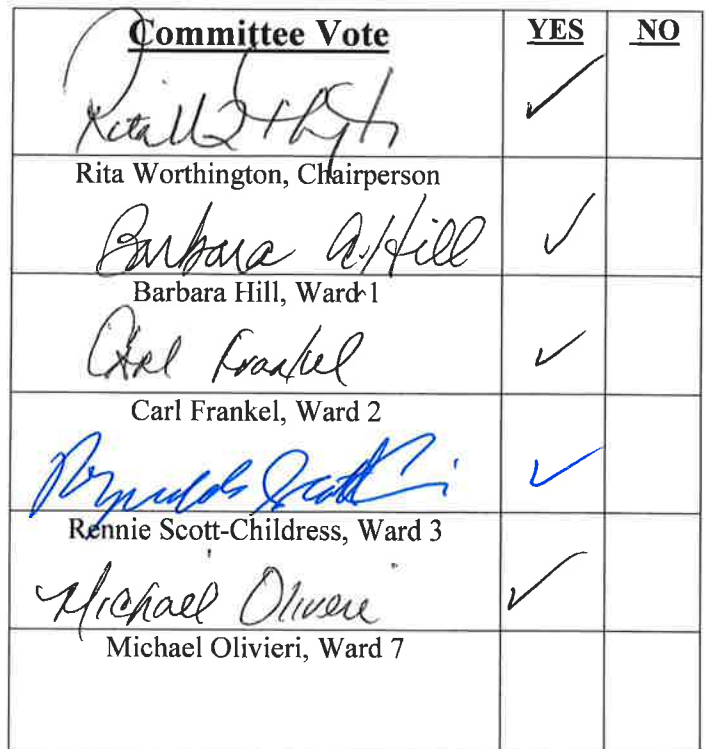 Committee Vote YES NO
✓
Rita Worthington, Chairperson
Barbara A. Hill ✓
Barbara Hill, Ward 1
Carl Frankel ✓
Carl Frankel, Ward 2
Reynolds Scott ✓
Rennie Scott-Childress, Ward 3
Michael Olivieri ✓
Michael Olivieri, Ward 7